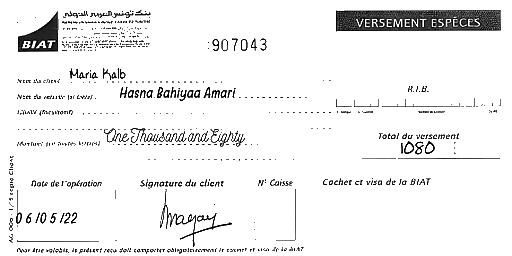 بنك تونس العربي الدولي
BIAT
VERSEMENT ESPÈCES
:907043
Nom du client Maria Kalb
Nom du verseur (si tiers) Hasna Bahiyaa Amari
R.I.B.
Montant (en toutes lettres) One Thousand and Eighty
Total du versement
1080
Date de l'opération
Signature du client
N° Caisse
Cachet et visa de la BIAT
06/05/22
Pour être valable, le présent reçu doit comporter obligatoirement le cachet et visa de la BIAT